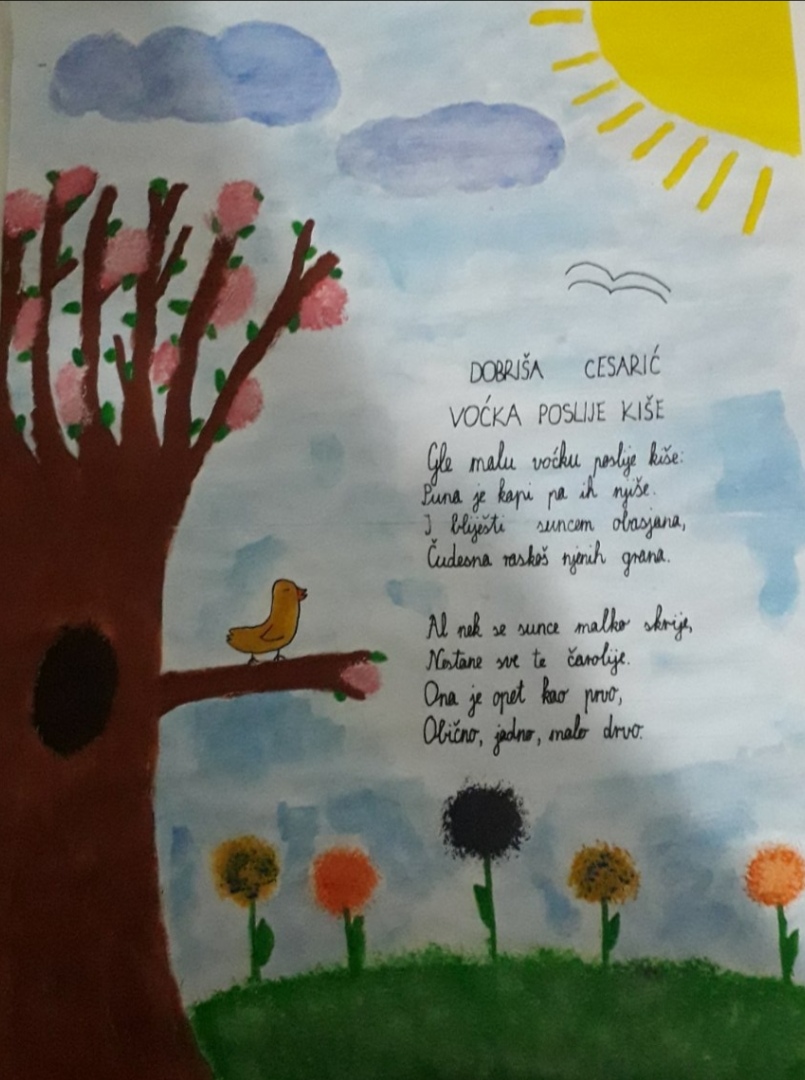 DOBRIŠA CESARIĆ
VOĆKA POSLIJE KIŠE
Gle malu voćku poslije kiše:
Puna je kapi pa ih njiše.
I bliješti suncem obasjana,
Čudesna raskoš njenih grana.
Al nek se sunce malko skrije,
Nestane sve te čarolije.
Ona je opet kao prvo,
Obično, jadno, malo drvo.